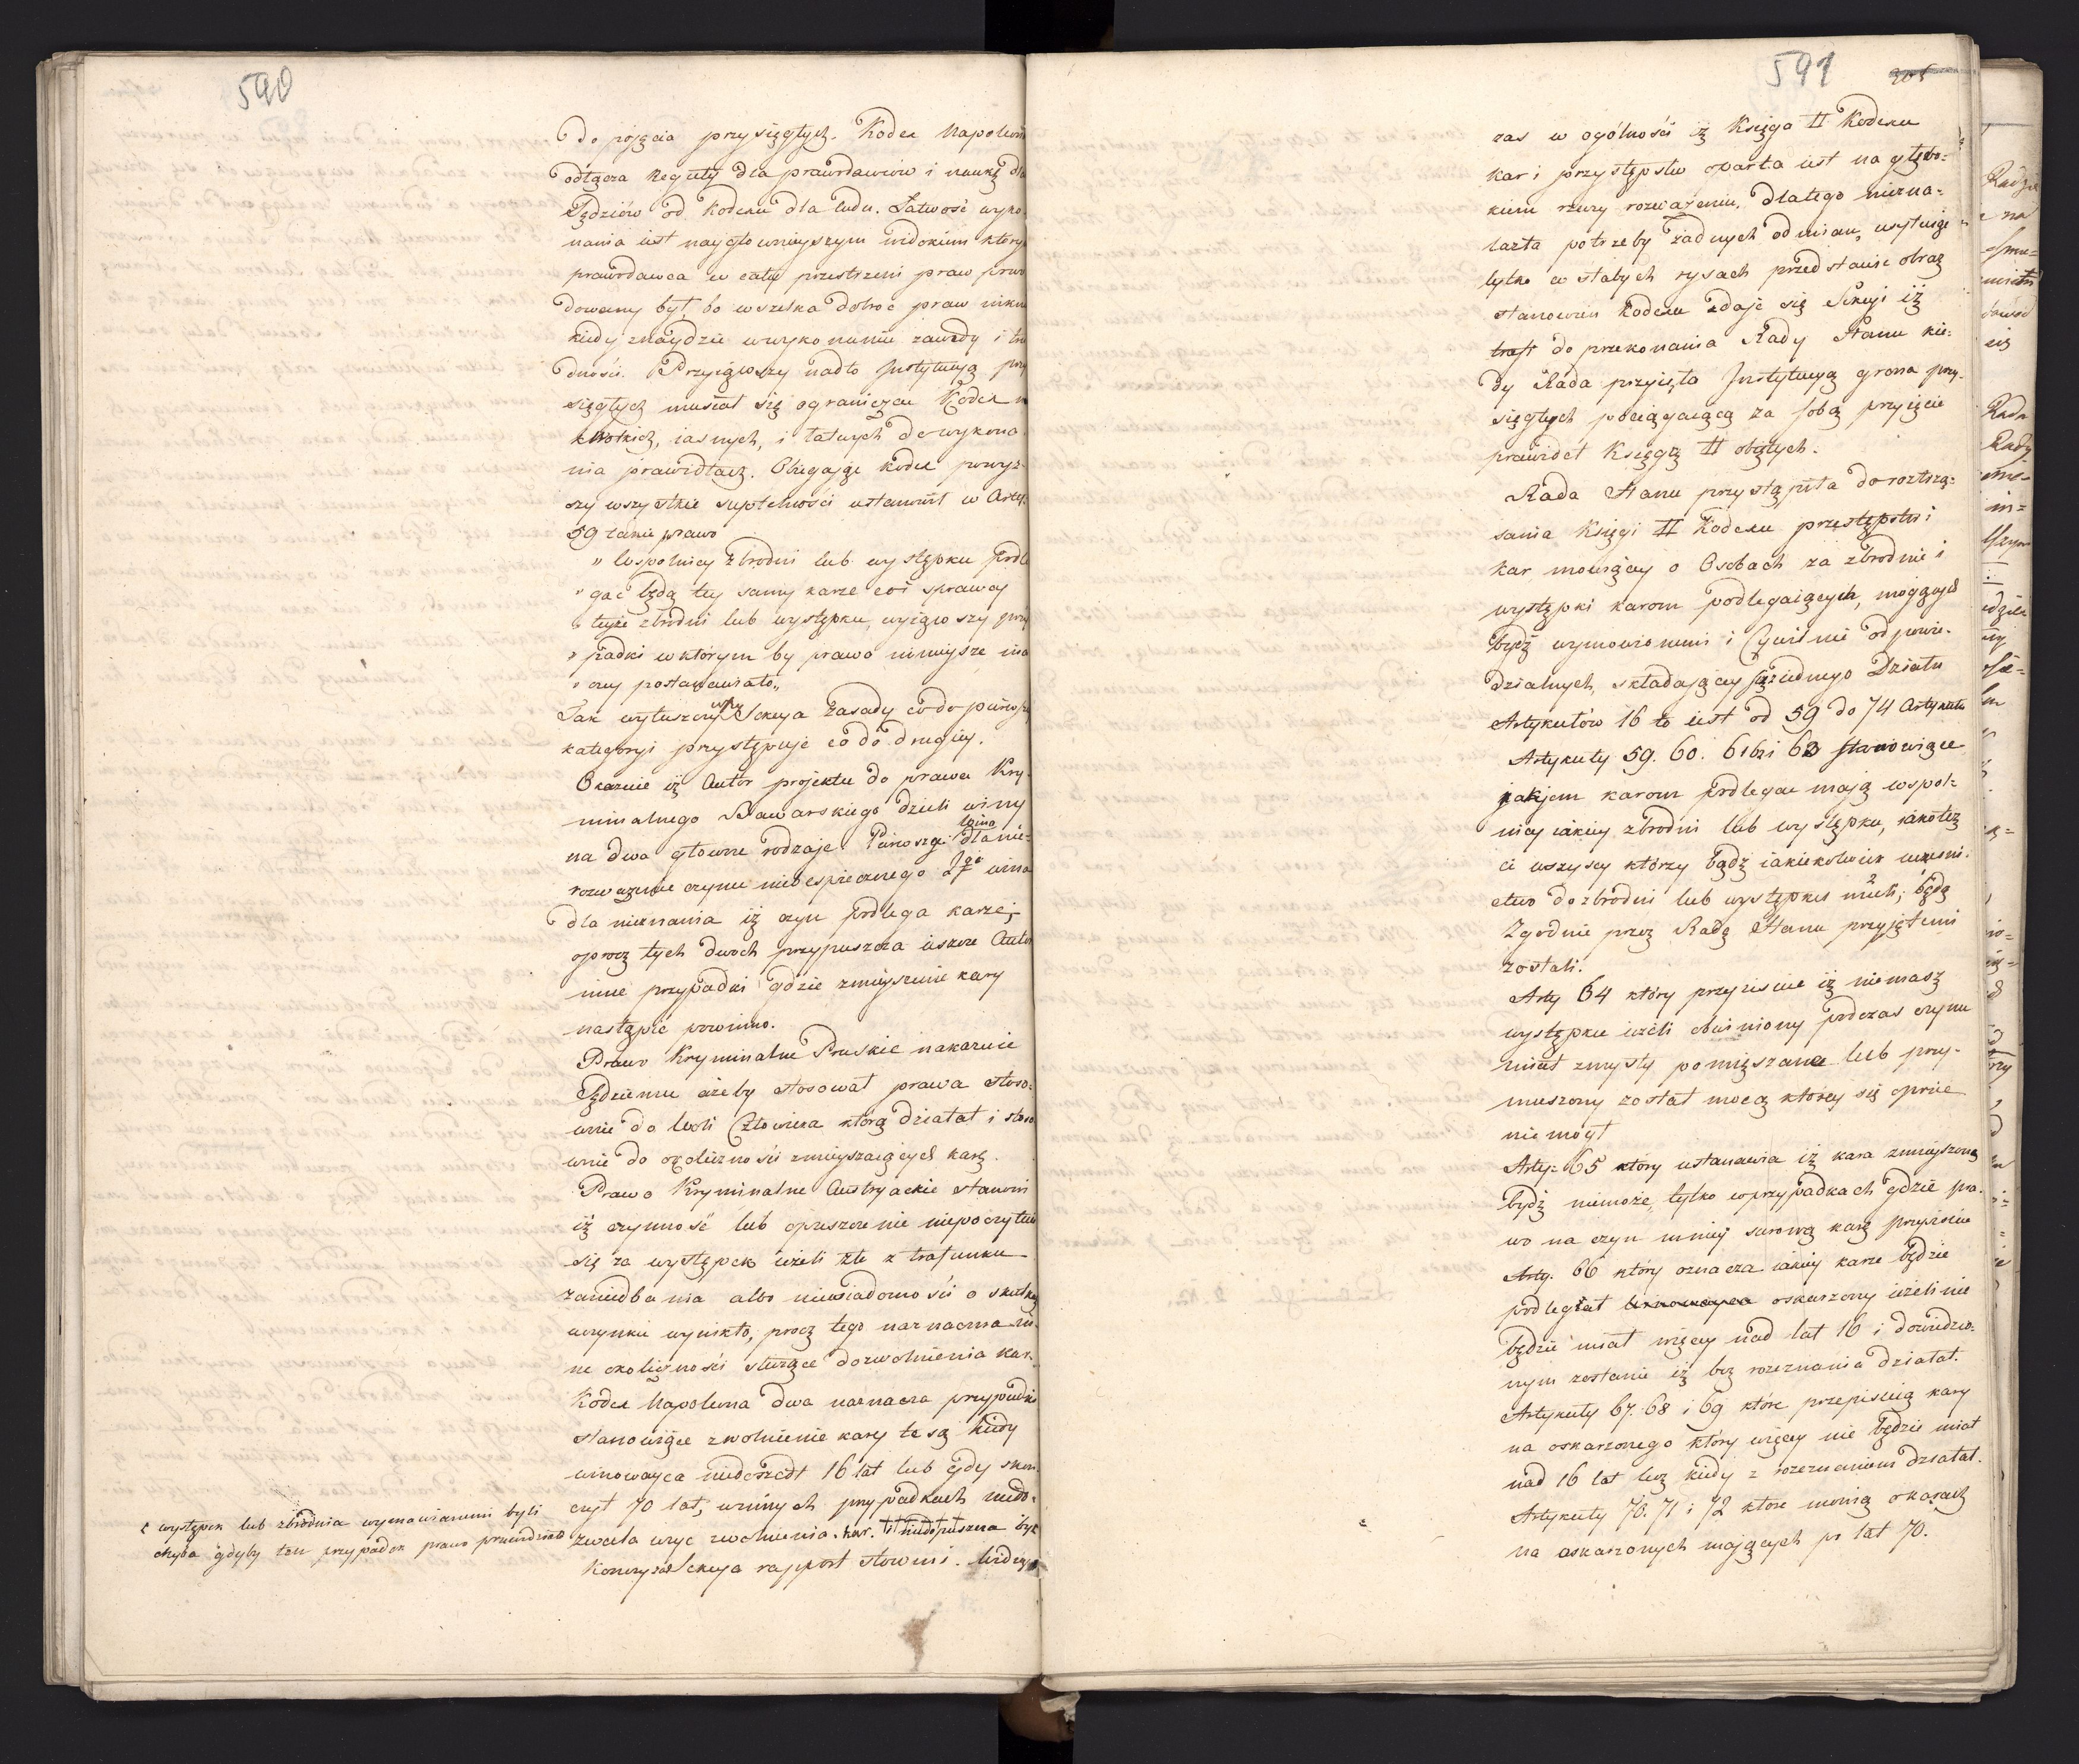 590
do pojęcia przysięgłych. Kodex Napoleon
odłącza reguły dla prawodawców i naukę dla
Sędziów od Kodexu dla ludu. Łatwość wyko-
nania iest naygłownieyszym widokiem który
prawodawca w całey przestrzeni praw powo
dowany był, bo wszelka dobroć praw niknie
kiedy znaydzie w wykonaniu zawady i tru
dności. Przyiąwszy nadto Jnstytucyą przy
sięgłych musiał się ograniczać Kodex w
krótkich, iasnych, i łatwych do wykona
nia prawidłach. Obiegając Kodex powyż-
szy wszystkie subtelności ustanowił w Arty:
59 takie prawo
„ Wspólnicy zbrodni lub występku podle
„ gać będą tey samey karze coi sprawcy
„ teyże zbrodni lub występku, wyiąwszy przy
„ padki w którym by prawo ninieysze ina
„ czey postanawiało„
Tak wyłuszczywszy Sekcya zasady co do pierwszey
kategoryi przystępuje co do drugiey.
Okazuie iż Autor projektu do prawa Kry-
minalnego Bawarskiego dzieli winy
na dwa główne rodzaje Pierwszy: wina dla nie-
rozważenia czynu niebespiecznego 2ga wina
dla nieznania iż czyn podlega karze,
oprocz tych dwoch przypuszcza ieszcze Autor
inne przypadki gdzie zmnieyszenie kary
nastąpić powinno.
Prawo Kryminalne Pruskie nakazuie
Sędziemu ażeby stosował prawa stoso-
wnie do woli Człowieka którą działał i stoso
wnie do okoliczności zmnieyszaiących karę.
Prawo Kryminalne Austryackie stanowi
iż czynność lub opuszczenie niepoczytuie
się za występek ieżeli złe z trafunku
zaniedbania albo niewiadomości o skutkach
uczynku wynikło, procz tego naznacza in-
ne okoliczności służące do zwolnienia kar.
Kodex Napoleona dwa naznacza przypadki
stanowiące zwolnienie kary te są kiedy
winowayca niedoszedł 16 lat lub gdy skoń-
czył 70 lat, w innych przypadkach niedo-
zwala więc zwolnienia kar. i niedopuszcza byż
Kończyła Sekcya rapport słowami. Widząc
występek lub zbrodnia wymawianemi byli
chyba gdyby ten przypadek prawo przewidziało
591
305
zas w ogólności iż Księga II Kodexu
kar i przystępstw oparta iest na głębo-
kiem rzeczy rozważeniu, dlatego niezna-
lazła potrzeby żadnych odmian, usyłuiąc
tylko w stałych rysach przedstawić obraz
stanowień Kodexu zdaje się Sekcyi iż
trafi do przekonania Rady Stanu kie-
dy Rada przyięła Jnstytucyą grona przy-
sięgłych pociągaiącą za sobą przyięcie
prawideł Księgą II objętych.
Rada Stanu przystąpiła do roztrzą-
sania Księgi II Kodexu przestępstw i
kar mówiącey o Osobach za zbrodnie i
występki karom podlegaiących, mogących
bydź wymowionemi i Cywilnie odpowie-
dzialnych, składającey się z iednego Działu
Artykułów 16 to iest od 59 do 74 Artykułu
Artykuły 59. 60. 61 62 i 63 stanowiące
jakiem karom podlegać mają wspól-
nicy iakiey zbrodni lub występku, iakoteż
ci wszyscy którzy bądź iakiekolwiek uczesni-
ctwo do zbrodni lub występku mieli, będą
Zgodnie przez Radę Stanu przyjętemi
zostali.
Arty 64 który przepisuie iż niemasz
występku ieżeli obwiniony podczas czynu
miał zmysły pomięszane lub przy-
muszony został mocą którey się oprzeć
nie mógł
Arty: 65 który ustanawia iż kara zmnieyszoną
bydź niemoże, tylko w przypadkach gdzie pra-
wo na czyn mniey surową karę przepisuie
Arty. 66 który oznacza iakiey karze będzie
podlegał oskarżony ieżeli nie
będzie miał więcey nad lat 16 i dowiedzio-
nym zostanie iż bez rozeznania działał.
Artykuły 67. 68 i 69 które przepisuią kary
na oskarżonego który więcey nie będzie miał
nad 16 lat lecz kiedy z rozeznaniem działał.
Artykuły 70. 71 i 72 które mowią o karach
na oskarżonych mających po lat 70.